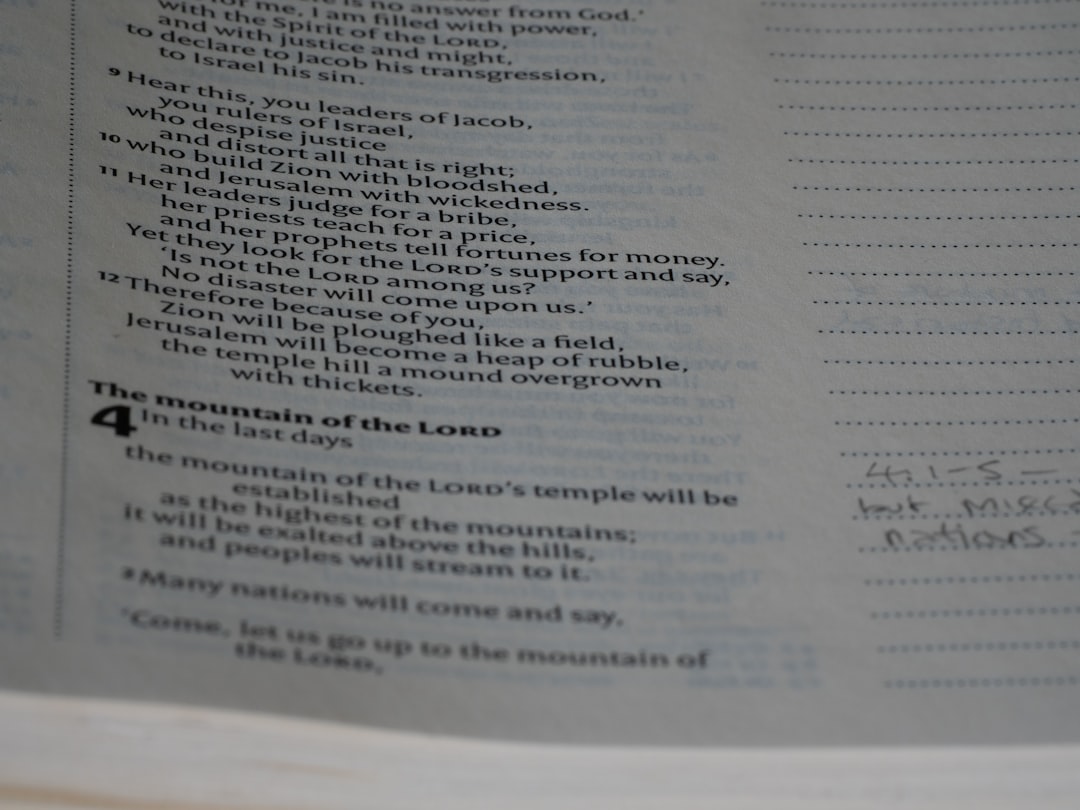 is no answer from God.'
for me, I am filled with power,
with the Spirit of the LORD,
and with justice and might,
to declare to Jacob his transgression,
to Israel his sin.
9 Hear this, you leaders of Jacob,
you rulers of Israel,
who despise justice
and distort all that is right;
10 who build Zion with bloodshed,
and Jerusalem with wickedness.
11 Her leaders judge for a bribe,
her priests teach for a price,
and her prophets tell fortunes for money.
Yet they look for the LORD's support and say,
'Is not the LORD among us?
No disaster will come upon us.'
12 Therefore because of you,
Zion will be ploughed like a field,
Jerusalem will become a heap of rubble,
the temple hill a mound overgrown
with thickets.
The mountain of the LORD
4 In the last days
the mountain of the LORD's temple will be
established
as the highest of the mountains;
it will be exalted above the hills,
and peoples will stream to it.
2 Many nations will come and say,
'Come, let us go up to the mountain of
the LORD,
4:1-5 –
but
nations